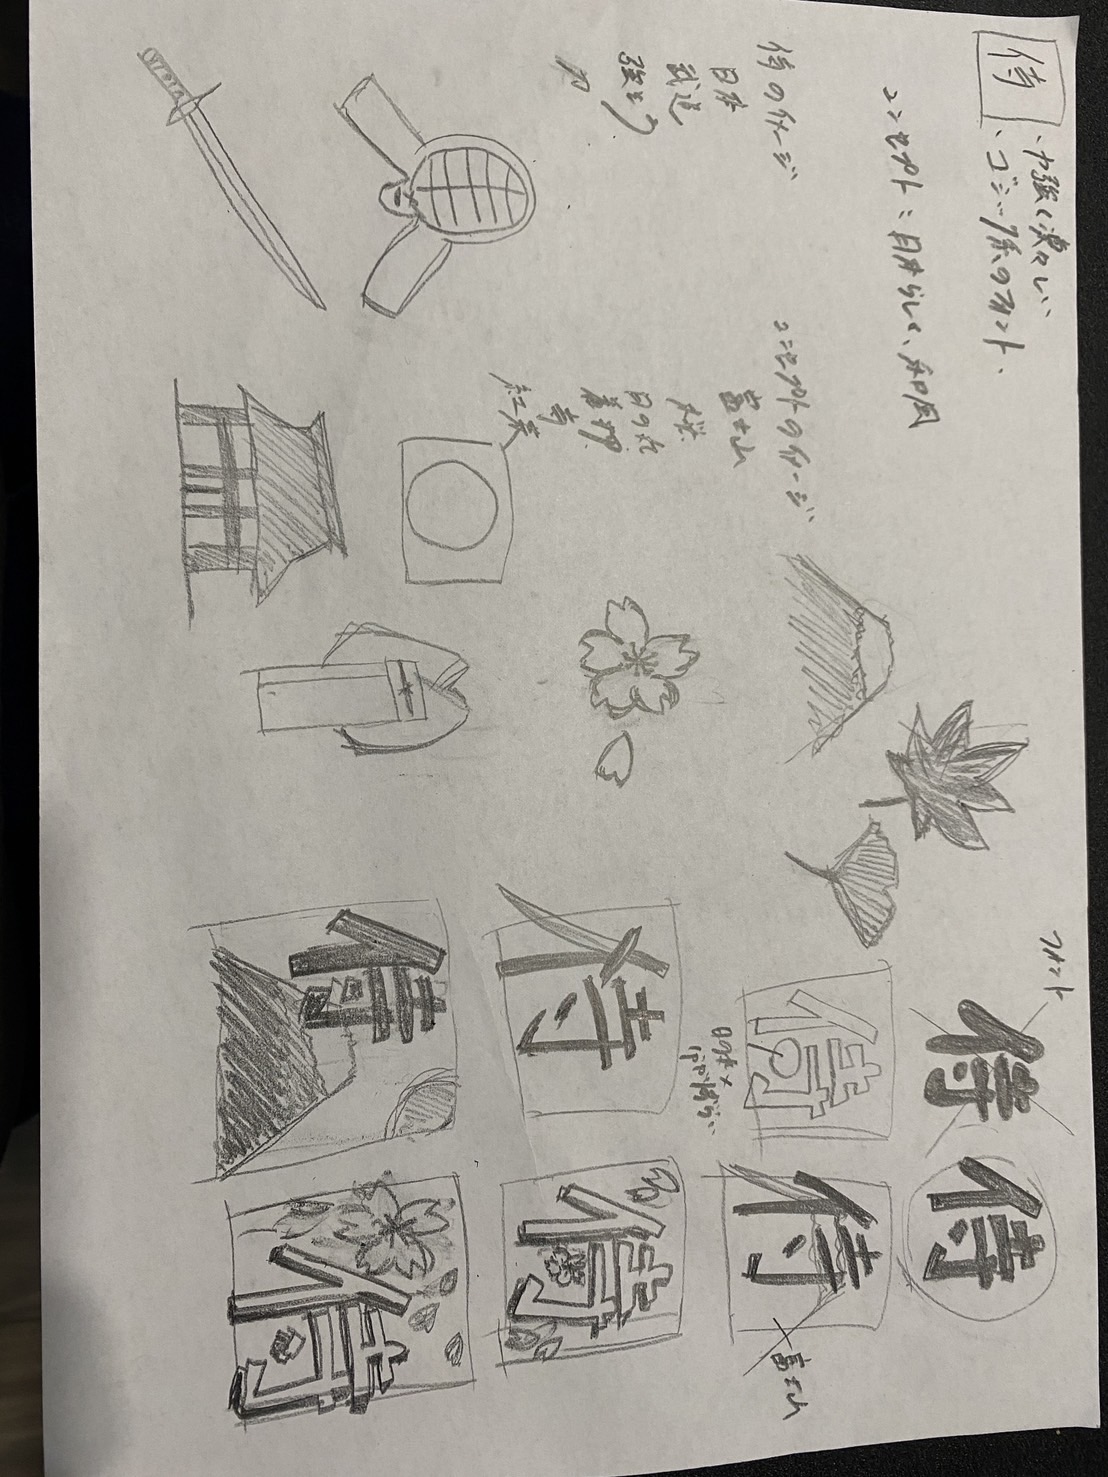 侍
・力強く凛々しい
・ゴシック系のフォント
コンセプト：日本らしく、和風
侍のイメージ
日本
武道
強そう
刀
コンセプトのイメージ
富士山
桜
日の丸
着物
寺
紅葉
フォント
侍
侍
侍
侍
×富士山
侍
侍
侍
侍